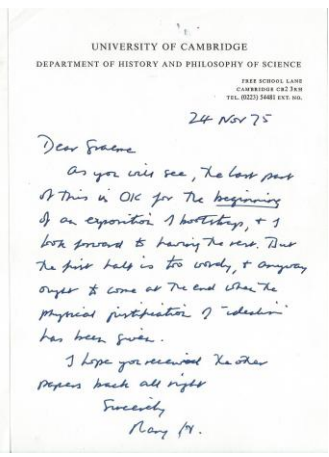 UNIVERSITY OF CAMBRIDGE
DEPARTMENT OF HISTORY AND PHILOSOPHY OF SCIENCE
FREE SCHOOL LANE
CAMBRIDGE CB2 3RH
TEL. (0223) 54481 EXT. 110.
24 Nov 75
Dear Graeme
As you will see, the last part
of this is OK for the beginning
of an exposition of bootstrap, + I
look forward to having the rest. But
the first half is too wordy, + anyway
ought to come at the end when the
physical justification of
has been given.
I hope you received the other
papers back all right
Sincerely
Mary H.